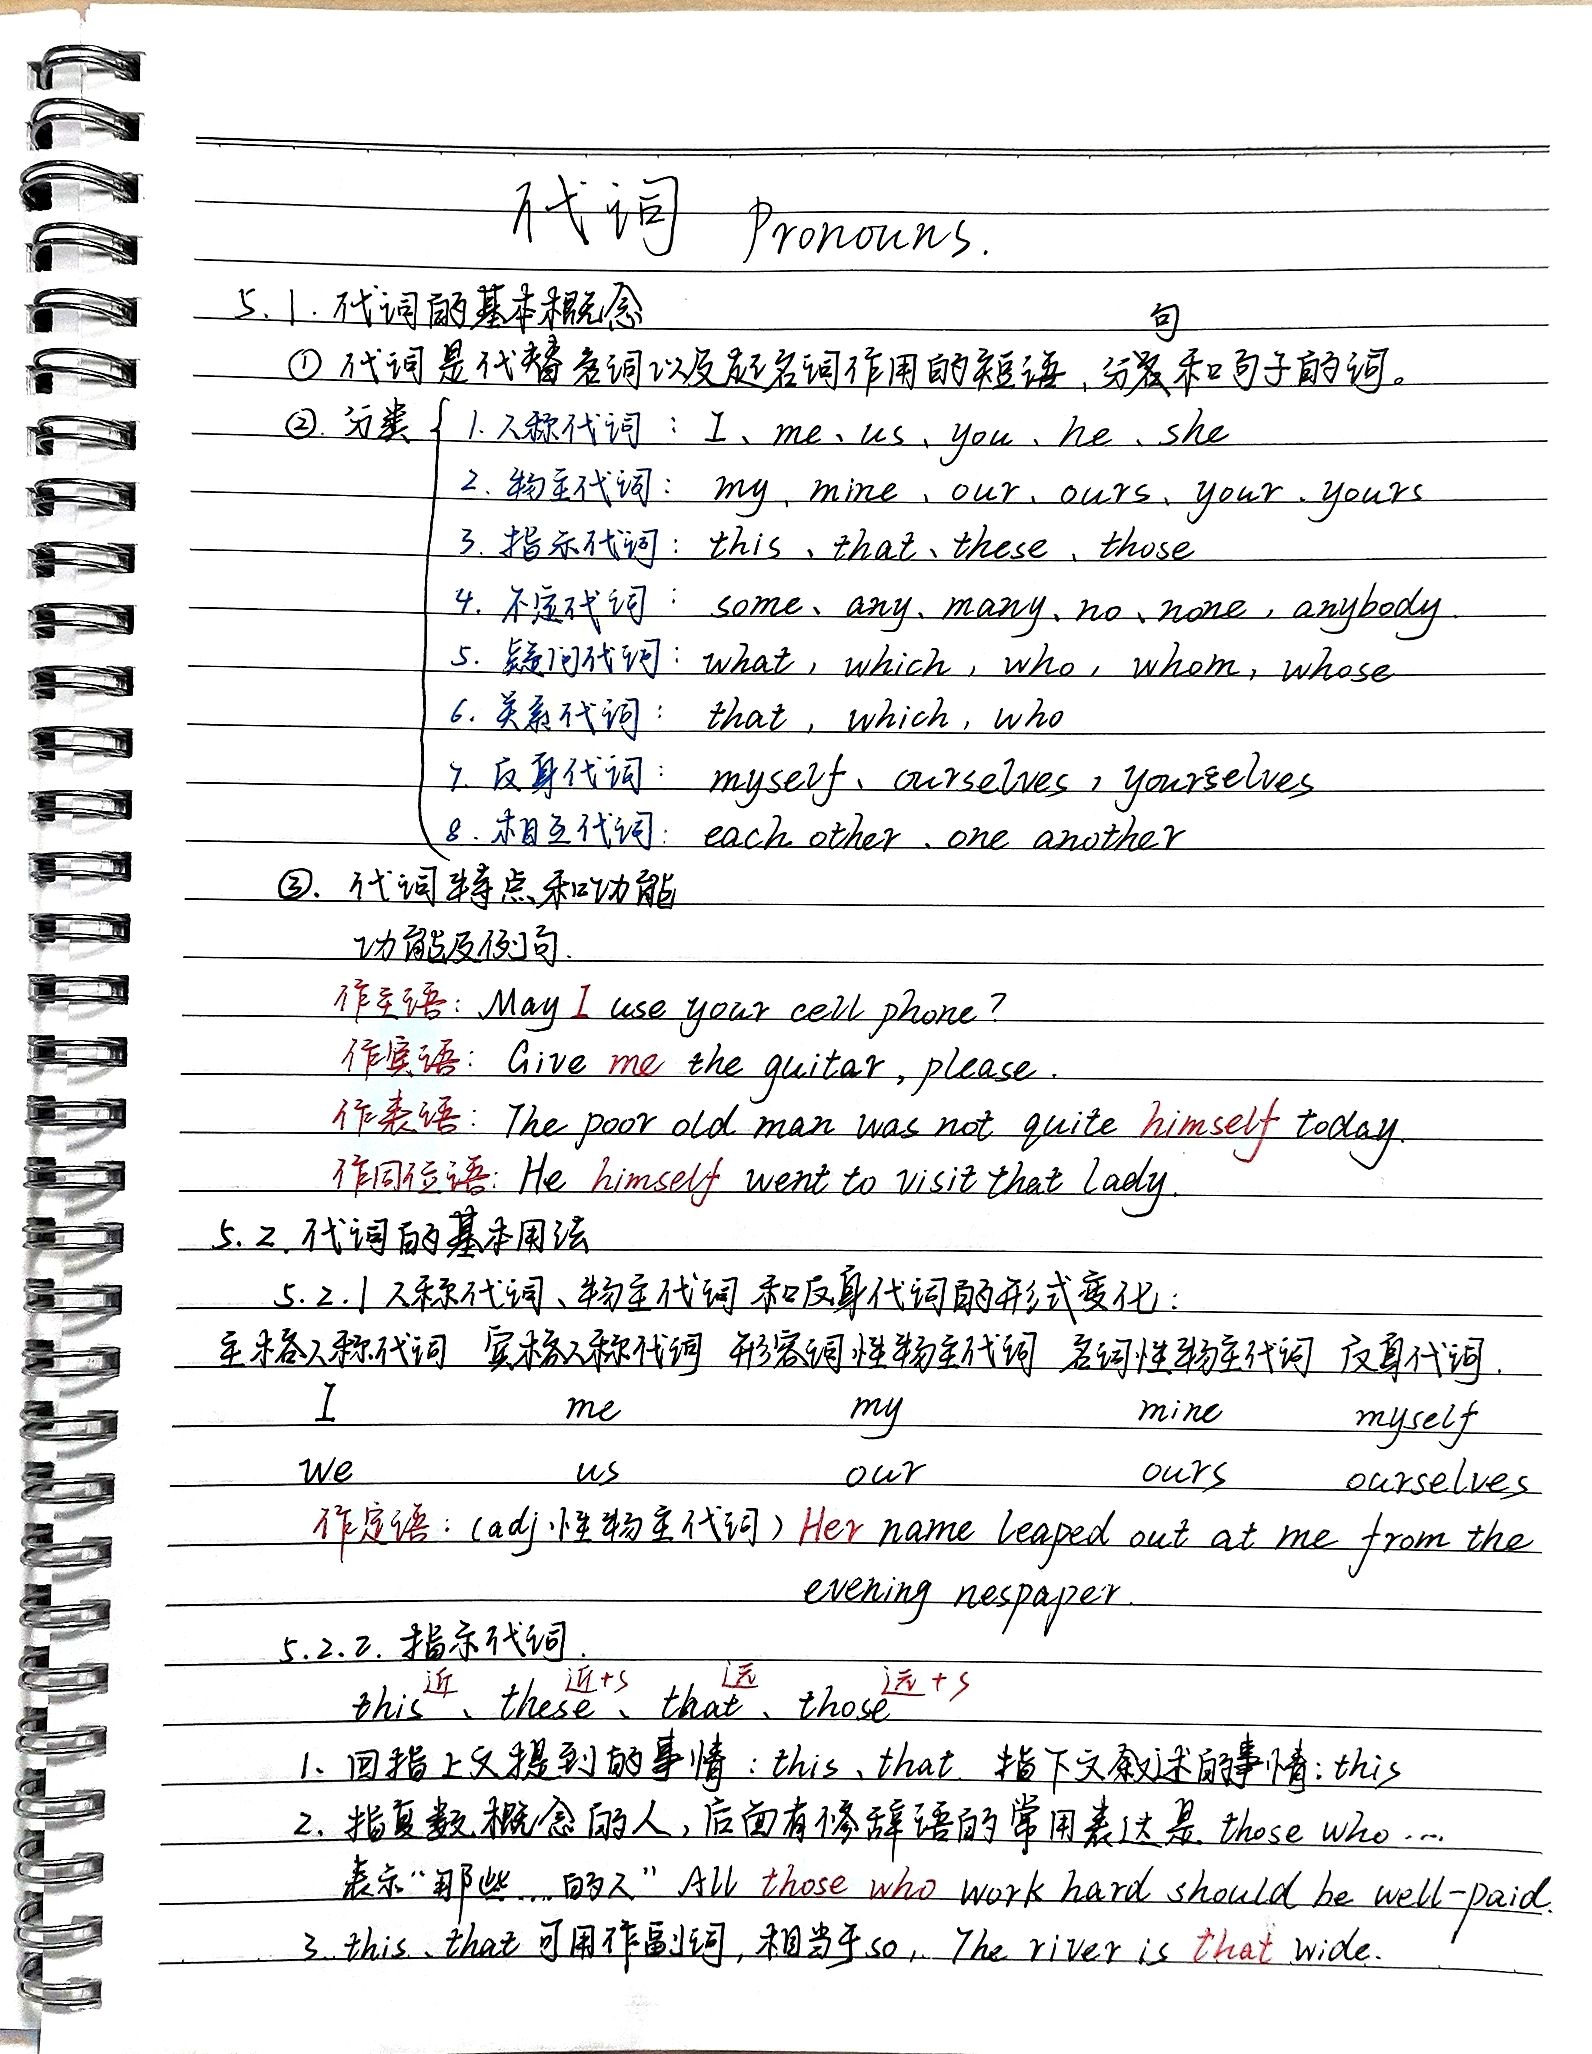 代词 Pronouns.
5.1.代词的基本概念
句
① 代词是代替名词以及起名词作用的短语、分 和句子的词。
②.分类 { 1.人称代词：I、me、us、you、he、she
2.物主代词：my、mine、our、ours、your、yours
3.指示代词：this、that、these、those
4.不定代词：some、any、many、no、none，anybody.
5.疑问代词：what，which，who，whom，whose
6.关系代词：that，which，who
7.反身代词：myself、ourselves，yourselves
8.相互代词：each other、one another
③.代词特点和功能
功能及例句.
作主语：May I use your cell phone?
作宾语：Give me the guitar, please.
作表语：The poor old man was not quite himself today.
作同位语：He himself went to visit that lady.
5.2.代词的基本用法
5.2.1人称代词、物主代词和反身代词的形式变化：
主格人称代词 宾格人称代词 形容词性物主代词 名词性物主代词 反身代词.
I me my mine myself
we us our ours ourselves
作定语：(adj.性物主代词) Her name leaped out at me from the
evening nespaper.
5.2.2.指示代词.
近 近+s 远 远+s
this、these、that、those
1、回指上文提到的事情：this、that. 指下文叙述的事情：this
2、指复数概念的人，后面有修辞语的常用表达是 those who....
表示“那些....的人” All those who work hard should be well-paid.
3.this、that可用作副词，相当于so，The river is that wide.